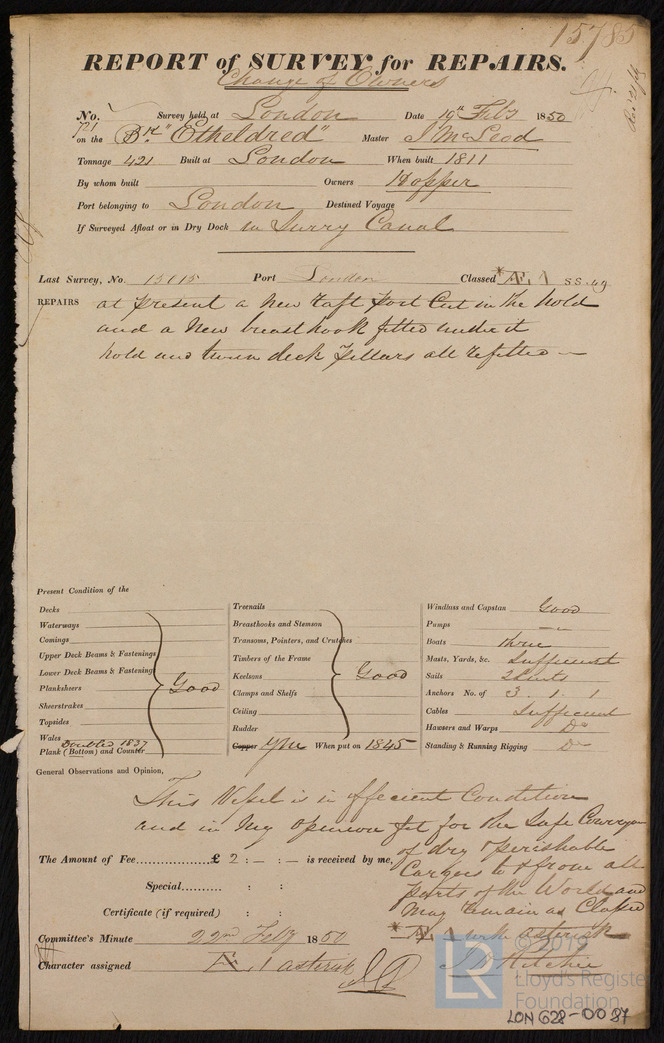 15785
REPORT of SURVEY for REPAIRS.
Change of Owners
No. Survey held at London Date 19th Feby 1850
on the Bk "Etheldred" Master J McLeod
Tonnage 421 Built at London When built 1811
By whom built Owners Hopper
Port belonging to London Destined Voyage
If Surveyed Afloat or in Dry Dock in Surry Canal
Last Survey, No. 15015 Port London Classed *Æ 1 SS. 49
REPAIRS at present a new raft port Cut in the hold
and a New breasthook fitted under it
hold and tween deck pillars all refitted —
Present Condition of the
Decks
Waterways
Comings
Upper Deck Beams & Fastenings
Lower Deck Beams & Fastenings
Planksheers
Sheerstrakes
Topsides
Wales
Doubled 1837
Plank (Bottom) and Counter
Good
Treenails
Breasthooks and Stemson
Transoms, Pointers, and Crutches
Timbers of the Frame
Keelsons
Clamps and Shelfs
Ceiling
Rudder
Good
Copper YM When put on 1845
Windlass and Capstan Good
Pumps
Boats three
Masts, Yards, &c. Sufficient
Sails 2 Suits
Anchors No. of 3 . 1 . 1
Cables Sufficient
Hawsers and Warps Do
Standing & Running Rigging Do
General Observations and Opinion,
This Vessel is in efficient Condition
and in my opinion fit for the Safe Conveyance
of dry & perishable
Cargoes to & from all
parts of the World and
May remain as Classed
*Æ 1 with asterisk
The Amount of Fee £ 2 : — : — is received by me,
Special : :
Certificate (if required) : :
Committee's Minute 22nd Feby 1850
Character assigned Æ 1 asterisk
© 2019
Lloyd's Register
Foundation
LR
LON 628-0087